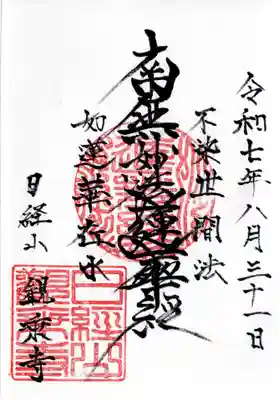 令和七年八月三十一日
不染世間法
南無妙法蓮華経
如蓮華在水
日経山
観乗寺